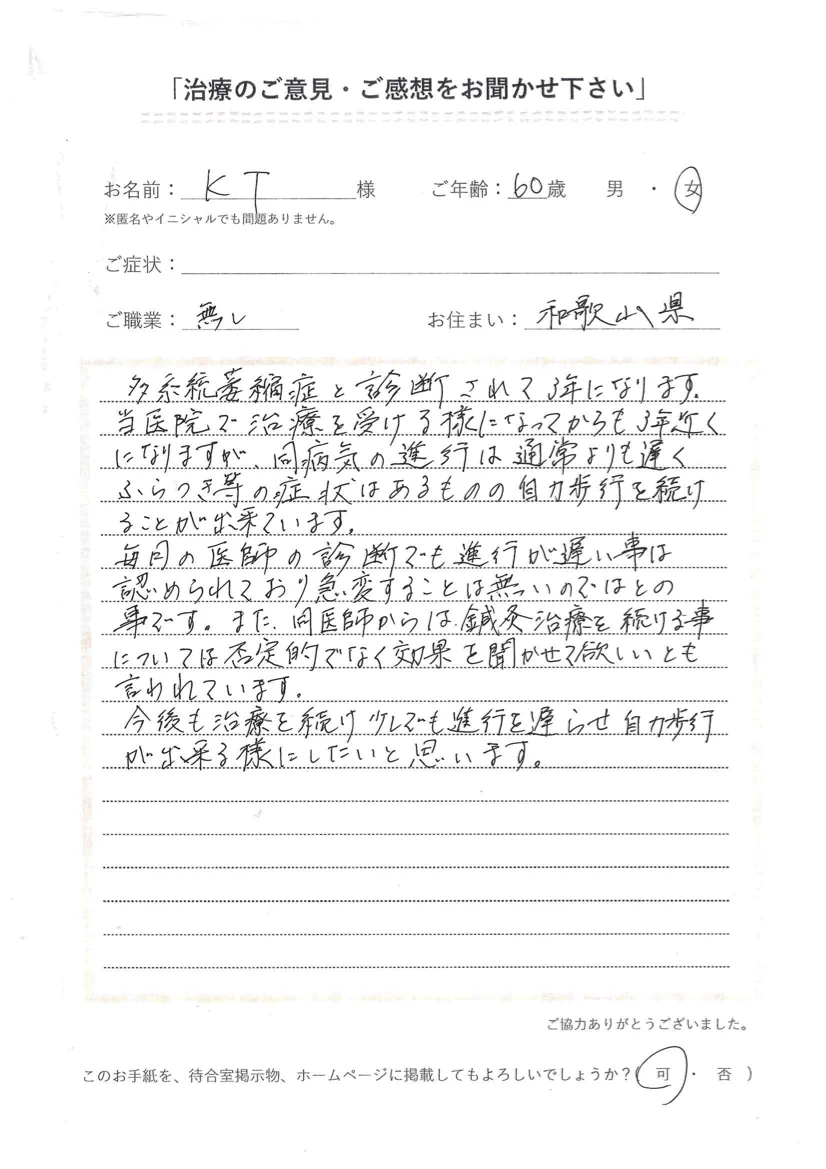 「治療のご意見・ご感想をお聞かせ下さい」
お名前： K T 様 ご年齢：60歳 男 ・ 女
※匿名やイニシャルでも問題ありません。
ご症状：
ご職業： 無し お住まい： 和歌山県
多系統萎縮症と診断されて3年になります。
当医院で治療を受ける様になってからも3年近く
になりますが、同病気の進行は通常よりも遅く
ふらつき等の症状はあるものの自力歩行を続け
ることが出来ています。
毎月の医師の診断でも進行が遅い事は
認められており急変することは無いのではとの
事です。また、同医師からは鍼灸治療を続ける事
については否定的でなく効果を聞かせて欲しいとも
言われています。
今後も治療を続け少しでも進行を遅らせ自力歩行
が出来る様にしたいと思います。
ご協力ありがとうございました。
このお手紙を、待合室掲示物、ホームページに掲載してもよろしいでしょうか？( 可 ・ 否 )